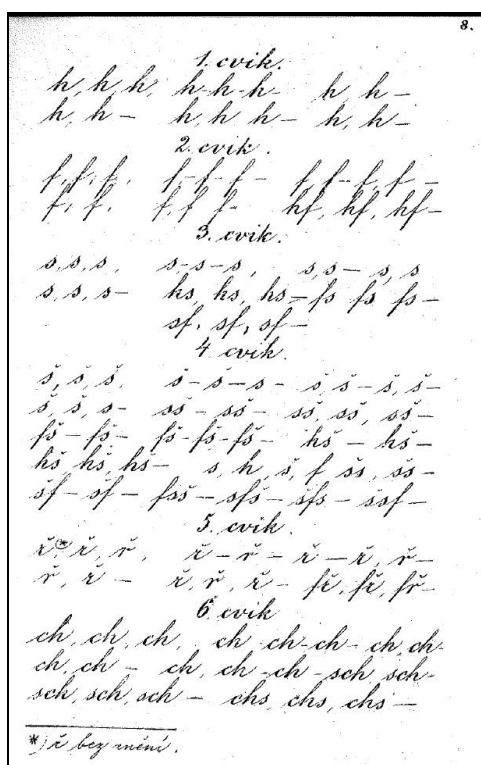 8.
1. cvik.
h, h, h, h-h-h- h, h-
h, h- h, h, h- h, h-
2. cvik.
f, f, f, f-f-f- f, f-f, f-
f, f, f, f f- hf, hf, hf-
3. cvik.
s, s, s, s-s-s, s, s- s, s
s, s, s- hs, hs, hs- fs fs fs-
sf, sf, sf-
4 cvik.
š, š, š, š-š-s- š š-š, š-
š, š, s- sš- sš- sš, sš, sš-
fš-fš- fš-fš-fš- hš- hš-
hš, hš, hs- s, h, š, f šs, šs-
šf-šf- fsš- sfš- šfs- šsf-
5. cvik.
ř*, ř, ř, ř-ř-ř-ř, ř-
ř, ř- ř, ř, ř- fř, fř, fř-
6. cvik
ch, ch, ch, ch ch-ch- ch, ch-
ch, ch- ch, ch-ch-sch, sch-
sch, sch, sch- chs, chs, chs-
*) ř bez znění.